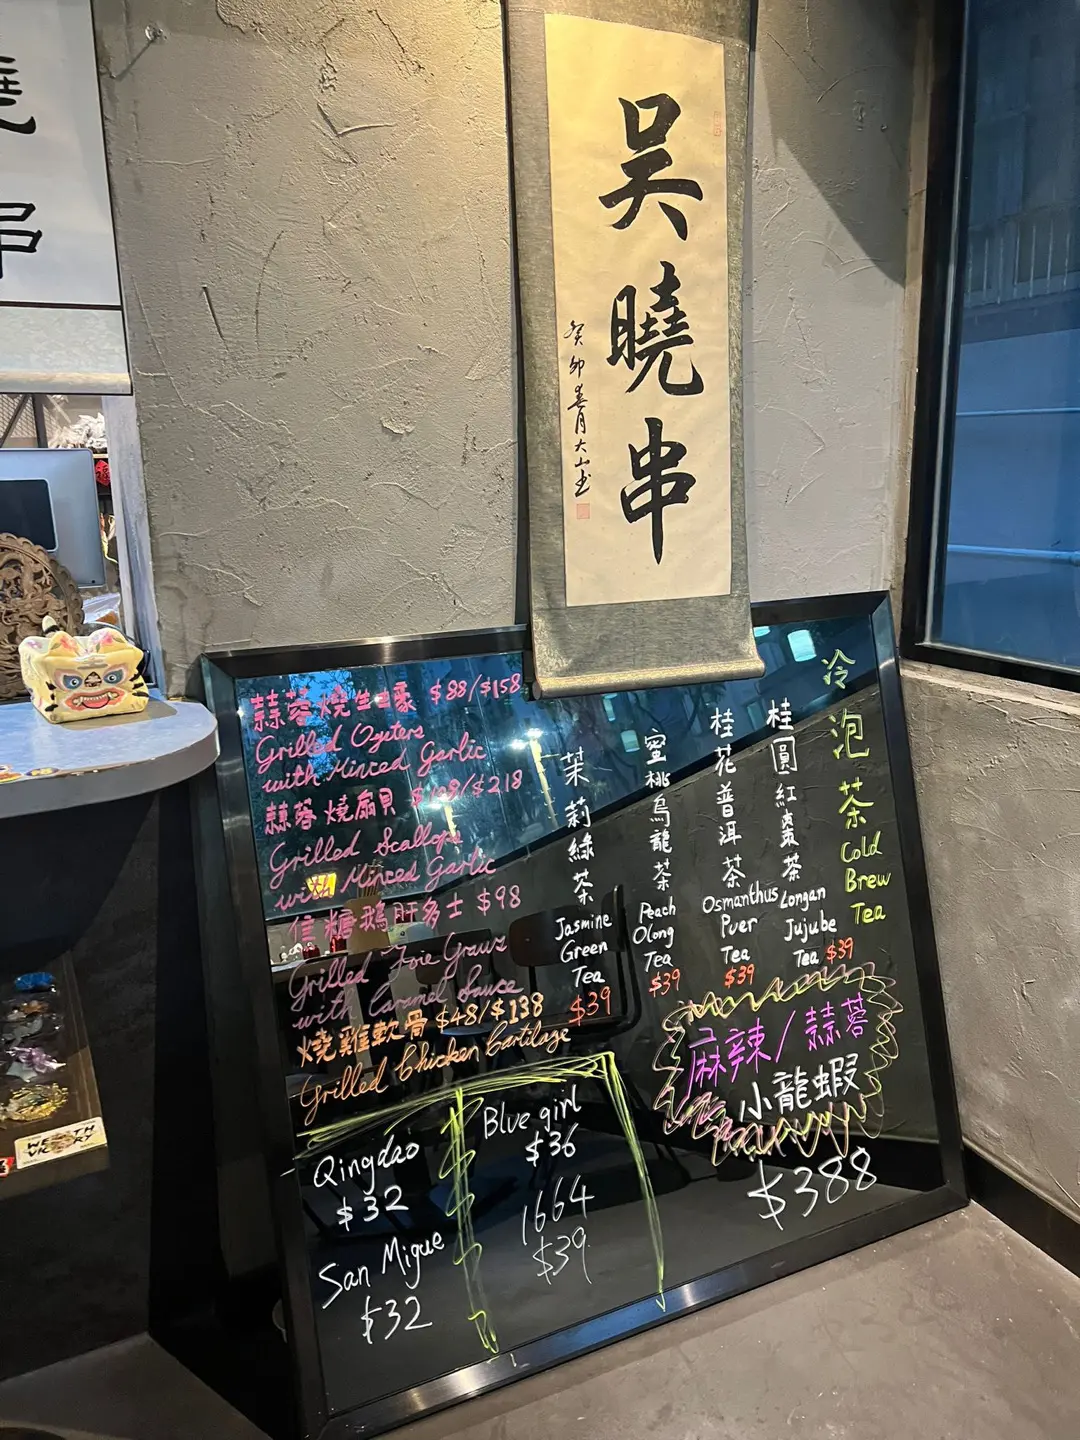 曉
串
吳曉串
癸卯春月大山书
蒜蓉燒生蠔 $88/$158
Grilled Oysters
with Minced Garlic
蒜蓉燒扇貝 /$218
Grilled Scallops
with Minced Garlic
糖鵝肝多士 $98
Grilled Foie Graws
with Caramel Sauce
燒雞軟骨 $48/$138
Grilled Chicken Cartilage
茉莉綠茶
Jasmine
Green
Tea
$39
蜜桃烏龍茶
Peach
Olong
Tea
$39
桂花普洱茶
Osmanthus
Puer
Tea
$39
桂圓紅棗茶
Longan
Jujube
Tea $39
冷泡茶
Cold
Brew
Tea
麻辣/蒜蓉
小龍蝦
$388
Qingdao
$32
San Migue
$32
Blue girl
$36
1664
$39